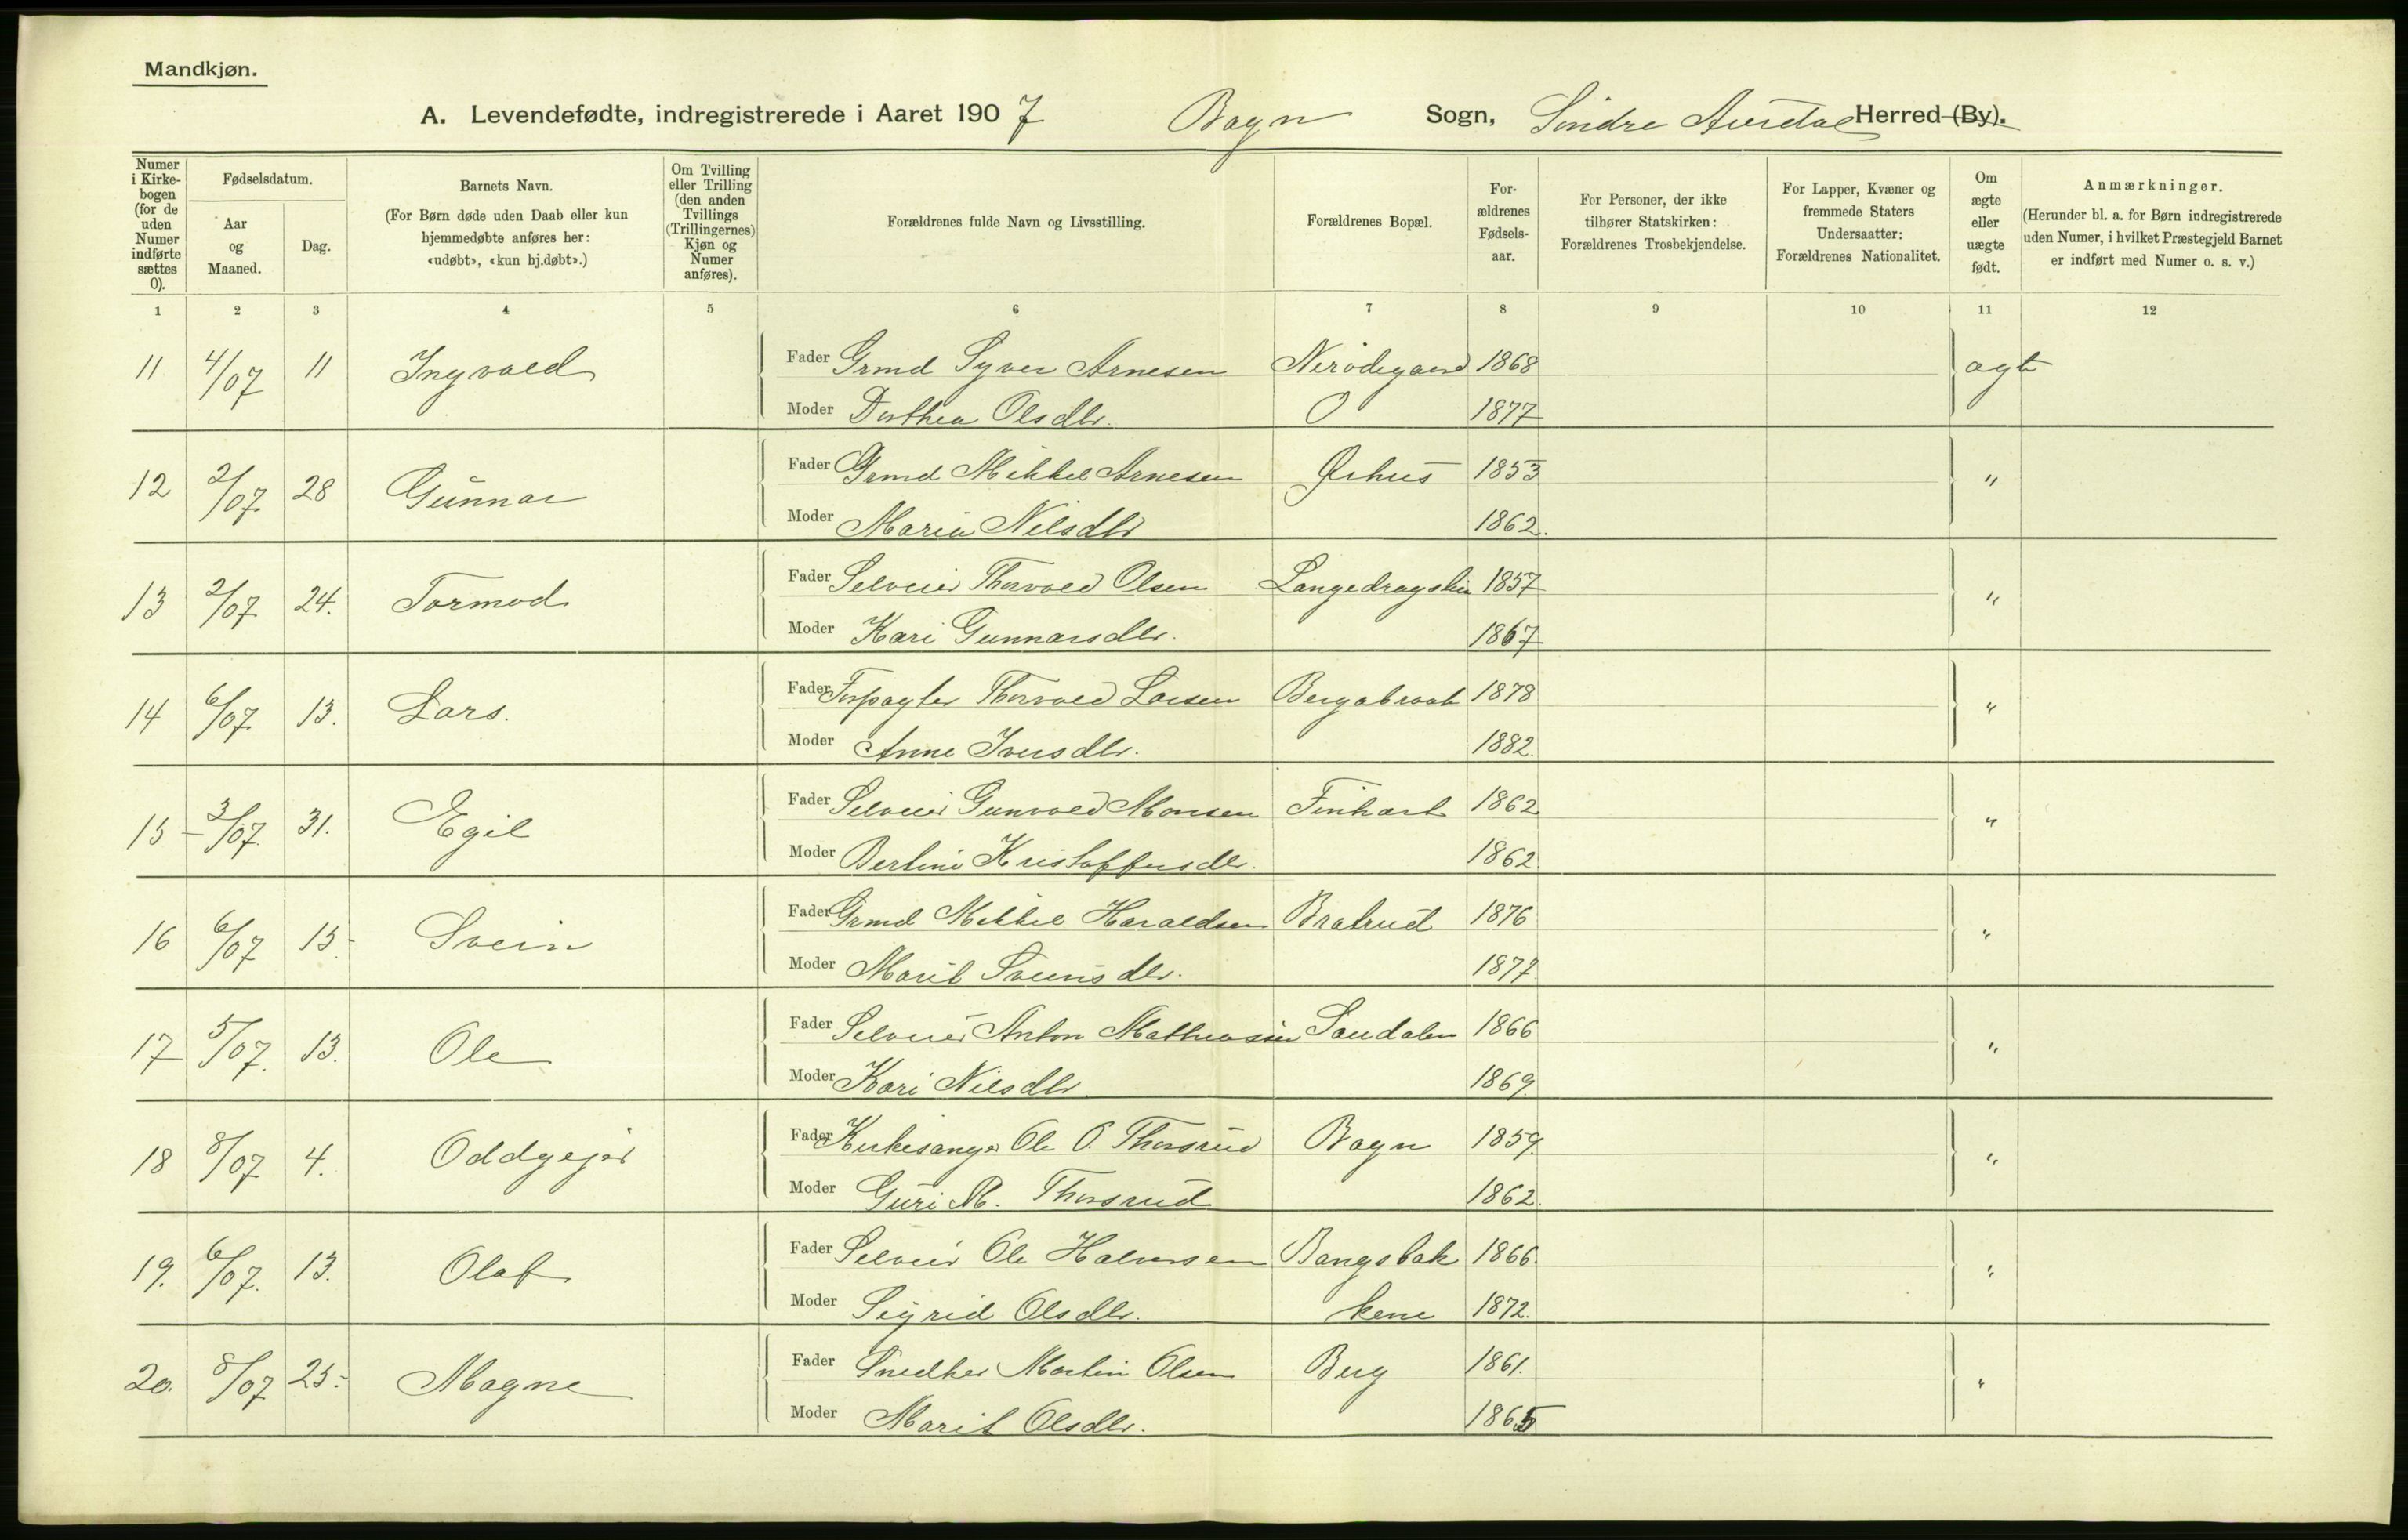 Mandkjøn.
A. Levendefødte, indregistrerede i Aaret 1907 Bagn Sogn, Søndre Aurdal Herred (By).
Numer i Kirkebogen (for de uden Numer indførte sættes 0).
Fødselsdatum.
Aar og Maaned.
Dag.
Barnets Navn.
(For Børn døde uden Daab eller kun hjemmedøbte anføres her: «udøbt», «kun hj.døbt».)
Om Tvilling eller Trilling (den anden Tvillings (Trillingernes) Kjøn og Numer anføres).
Forældrenes fulde Navn og Livsstilling.
Forældrenes Bopæl.
Forældrenes Fødselsaar.
For Personer, der ikke tilhører Statskirken: Forældrenes Trosbekjendelse.
For Lapper, Kvæner og fremmede Staters Undersaatter: Forældrenes Nationalitet.
Om ægte eller uægte født.
Anmærkninger.
(Herunder bl. a. for Børn indregistrerede uden Numer, i hvilket Præstegjeld Barnet er indført med Numer o. s. v.)
1 2 3 4 5 6 7 8 9 10 11 12
11 4/07 11 Ingvald Fader Grmd Syver Arnesen 1868 ægte
Moder Dorthea Olsdtr. 1877
12 2/07 28 Gunnar Fader Grmd Mikkel Arnesen Ørhus 1853 "
Moder Maria Nilsdtr 1862.
13 2/07 24. Tormod Fader Selveier Thorvald Olsen 1857 "
Moder Kari Gunnarsdtr. 1867
14 6/07 13. Lars. Fader Forpagter Thorvald Larsen Bergabraat 1878 "
Moder Anne Iversdtr. 1882.
15 3/07. 31. Egil Fader Selveier Gunvald Monsen Finhart 1862 "
Moder Bertine Kristoffersdtr. 1862.
16 6/07 15. Svein Fader Grmd Mikkel Haraldsen Bratrud 1876 "
Moder Marit Sveinsdtr. 1877.
17 5/07. 13. Ole Fader Selveier Anton Mathiassen 1866 "
Moder Kari Nilsdtr. 1869.
18 8/07 4. Oddgejr Fader Kirkesanger Ole O. Thorsrud Bagn 1859. "
Moder Guri M. Thorsrud 1862.
19. 6/07. 13. Olaf Fader Selveier Ole Halvorsen Bangsbak 1866. "
Moder Sigrid Olsdtr. kene 1872.
20. 8/07 25. Magne Fader Snedker Martin Olsen Berg 1861. "
Moder Marit Olsdtr. 1865